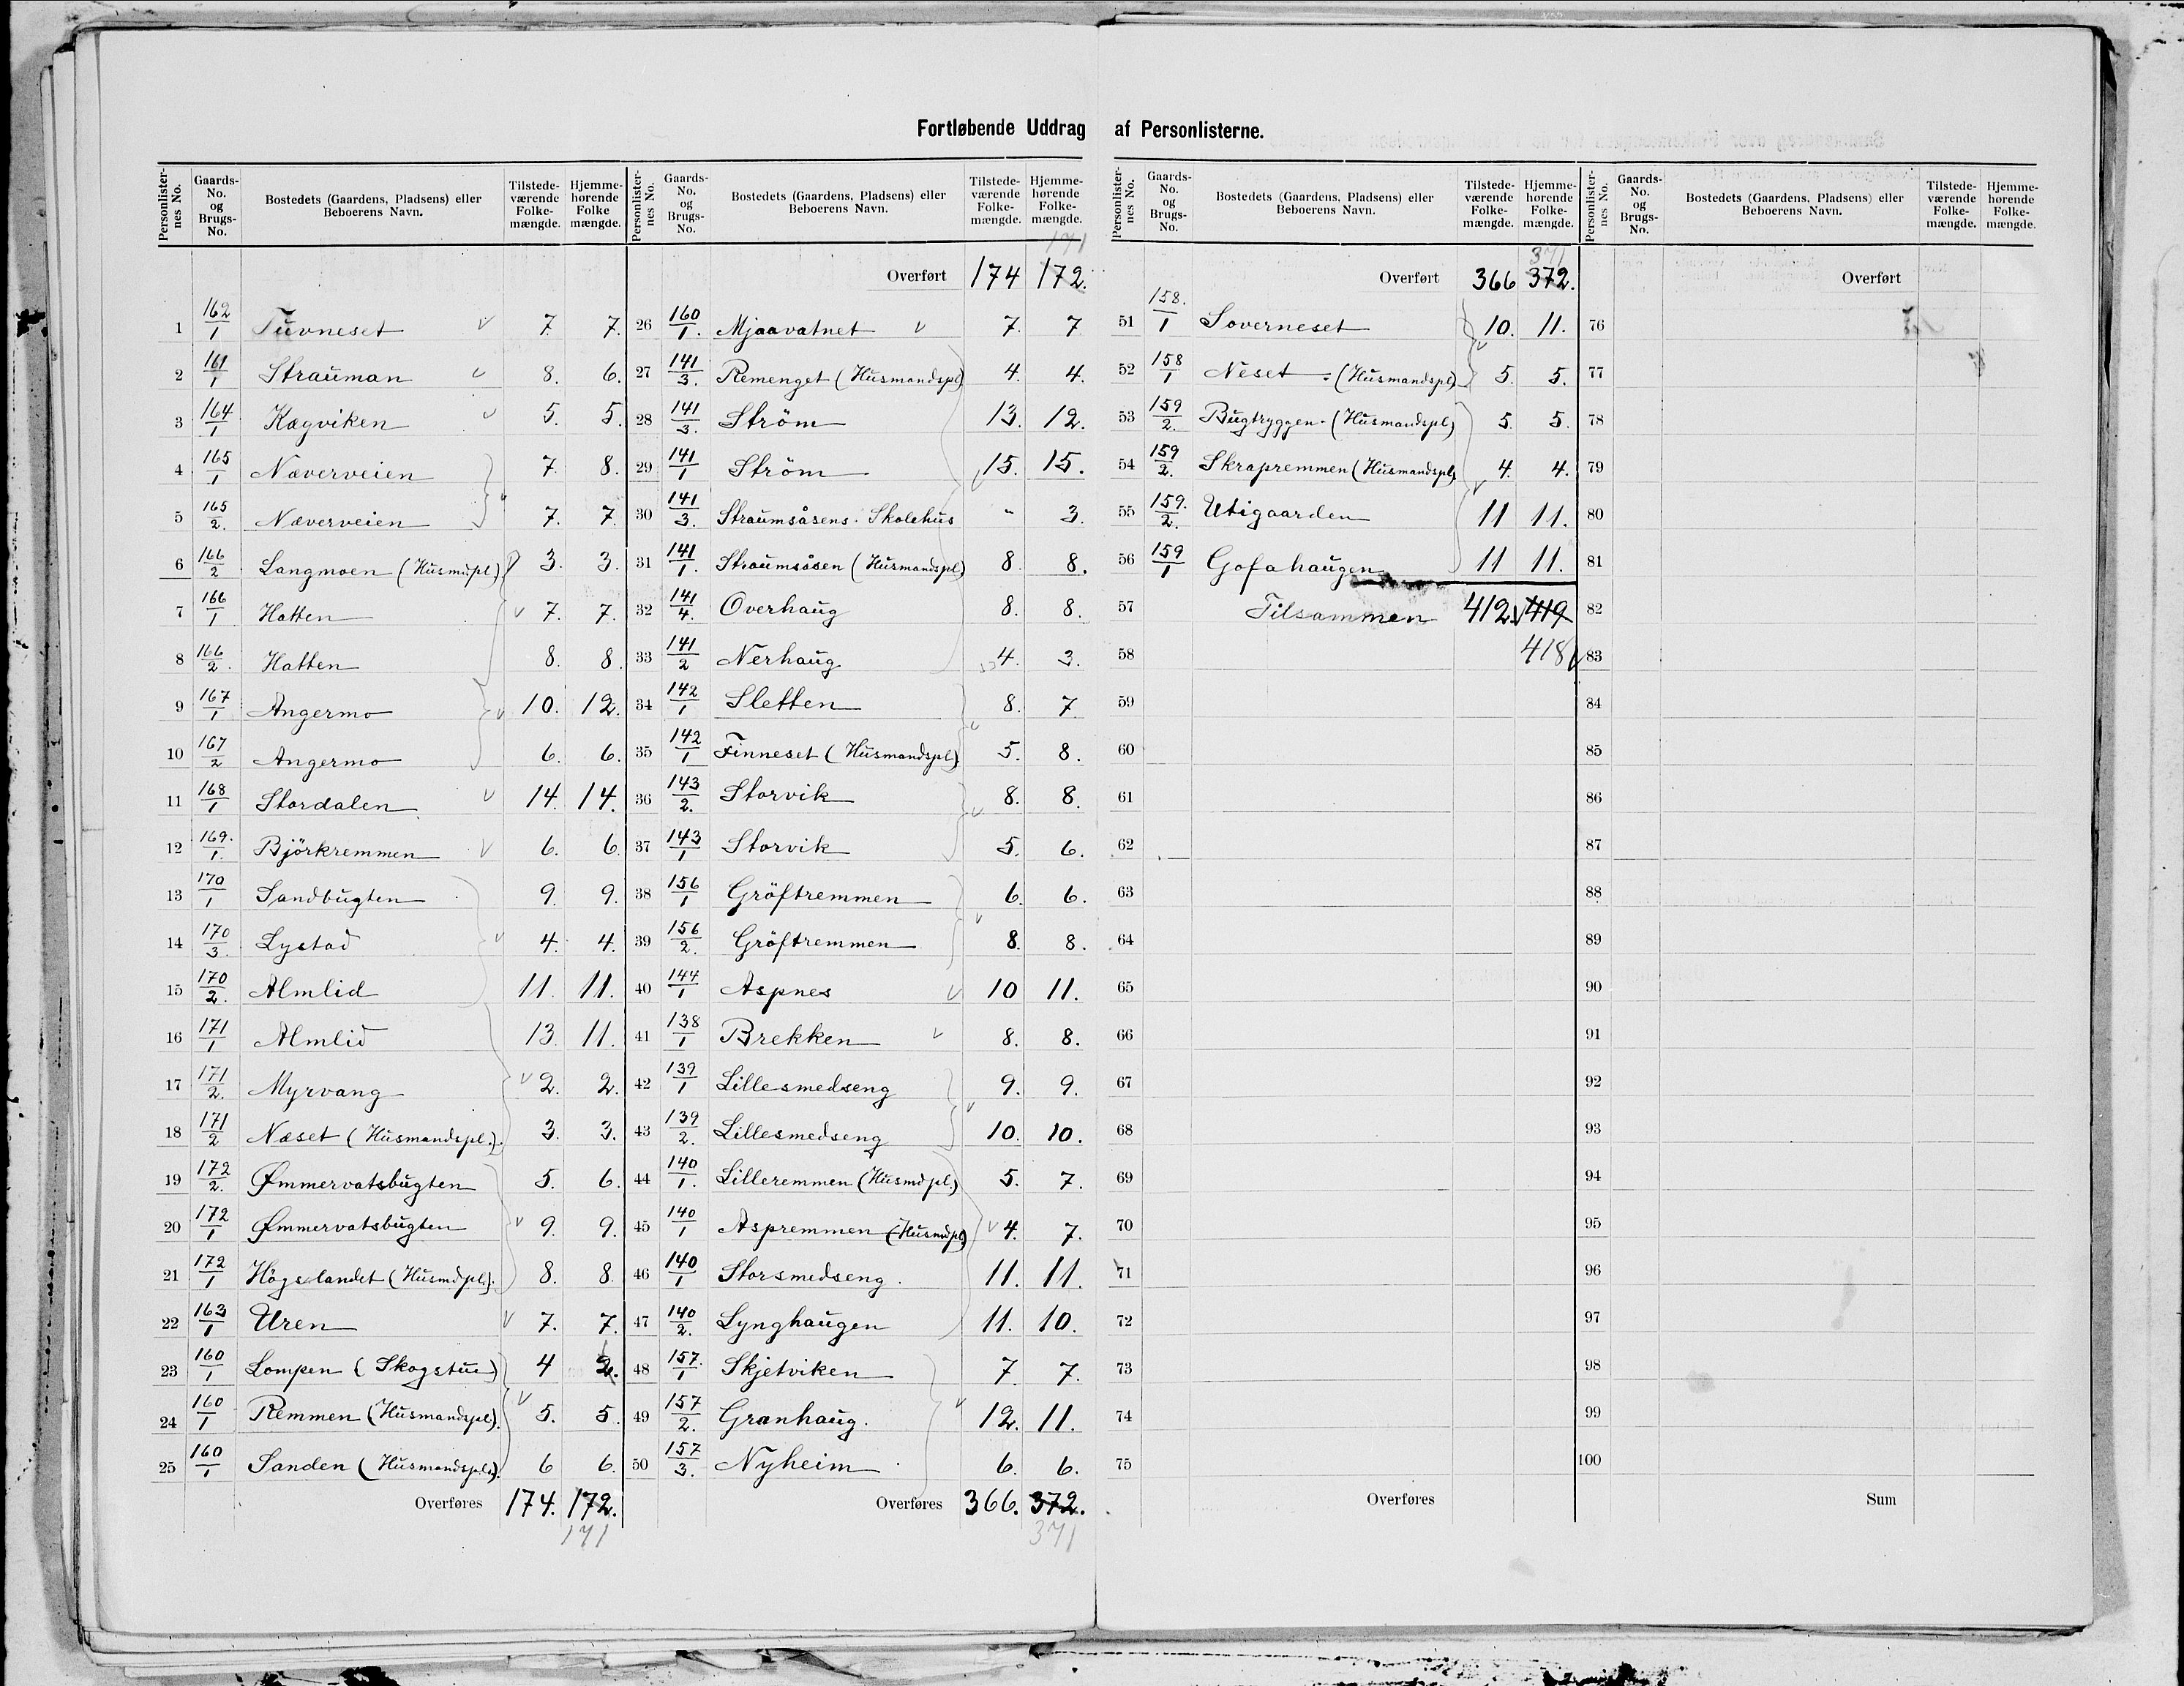 Fortløbende Uddrag af Personlisterne.
Personlister-nes No. Gaards-No. og Brugs-No. Bostedets (Gaardens, Pladsens) eller Beboerens Navn. Tilstede-værende Folke-mængde. Hjemme-hørende Folke mængde.
1 162/1 Tuvneset 7. 7.
2 161/1 Strauman 8. 6.
3 164/1 Kægviken 5. 5.
4 165/1 Næverveien 7. 8.
5 165/2. Næverveien 7. 7.
6 166/2 Langmoen (Husmdpl.) 3. 3.
7 166/1 Hatten 7. 7.
8 166/2. Hatten 8. 8.
9 167/1 Angermo 10. 12.
10 167/2 Angermo 6. 6.
11 168/1 Stordalen 14. 14.
12 169./1. Björkremmen 6. 6.
13 170/1 Sandbugten 9. 9.
14 170/3. Lystad 4. 4.
15 170/2. Almlid 11. 11.
16 171/1 Almlid 13. 11.
17 171/2. Myrvang 2. 2.
18 171/2 Næset (Husmandspl.). 3. 3.
19 172/2. Ømmervatsbugten 5. 6.
20 172/1 Ømmervatsbugten 9. 9.
21 172/1 Högslandet (Husmdpl.). 8. 8.
22 163/1 Uren 7. 7.
23 160/1 Lompen (Skogstue) 4 2.
24 160/1 Remmen (Husmandspl). 5. 5.
25 160/1 Sanden (Husmandspl.). 6 6.
Overføres 174. 172.
171
Personlister-nes No. Gaards-No. og Brugs-No. Bostedets (Gaardens, Pladsens) eller Beboerens Navn. Tilstede-værende Folke-mængde. Hjemme-hørende Folke-mængde.
171
Overført 174 172.
26 160/1. Mjaavatnet 7. 7
27 141/3. Remenget (Husmandspl) 4. 4.
28 141/3. Ström 13. 12.
29 141/1 Ström 15. 15.
30 141/3. Straumsåsens Skolehus " 3.
31 141/1. Straumsåsen (Husmandspl) 8. 8.
32 141/4. Overhaug 8. 8.
33 141/2 Nerhaug 4. 3.
34 142/1 Sletten 8. 7
35 142/1 Finneset (Husmandspl.) 5. 8.
36 143/2. Storvik 8. 8.
37 143/1 Storvik 5. 6.
38 156/1 Gröftremmen 6. 6.
39 156/2. Gröftremmen 8. 8.
40 144/1 Aspnes 10 11.
41 138/1 Brekken 8. 8.
42 139/1 Lillesmedseng 9. 9.
43 139/2. Lillesmedseng 10. 10.
44 140/1. Lilleremmen (Husmdpl.) 5. 7.
45 140/1 Aspremmen (Husmdpl.) 4. 7.
46 140/1 Storsmedseng. 11. 11.
47 140/2. Lynghaugen 11. 10.
48 157./1 Skjetviken 7. 7.
49 157/2. Granhaug. 12. 11.
50 157/3. Nyheim 6. 6.
Overføres 366. 372.
371
Personlister-nes No. Gaards-No. og Brugs-No. Bostedets (Gaardens, Pladsens) eller Beboerens Navn. Tilstede-værende Folke-mængde. Hjemme-hørende Folke-mængde.
371
Overført 366 372.
51 158./1 Soverneset 10. 11.
52 158/1 Neset (Husmandspl) 5. 5.
53 159/2. Bugtryggen (Husmandspl) 5. 5.
54 159/2. Skrapremmen (Husmandspl) 4. 4.
55 159./2. Utigaarden 11 11.
56 159/1 Gofahaugen 11 11.
57 Tilsammen 412. 419
58 418
59
60
61
62
63
64
65
66
67
68
69
70
71
72
73
74
75
Overføres
Personlister-nes No. Gaards-No. og Brugs-No. Bostedets (Gaardens, Pladsens) eller Beboerens Navn. Tilstede-værende Folke-mængde. Hjemme-hørende Folke-mængde.
Overført
76
77
78
79
80
81
82
83
84
85
86
87
88
89
90
91
92
93
94
95
96
97
98
99
100
Sum